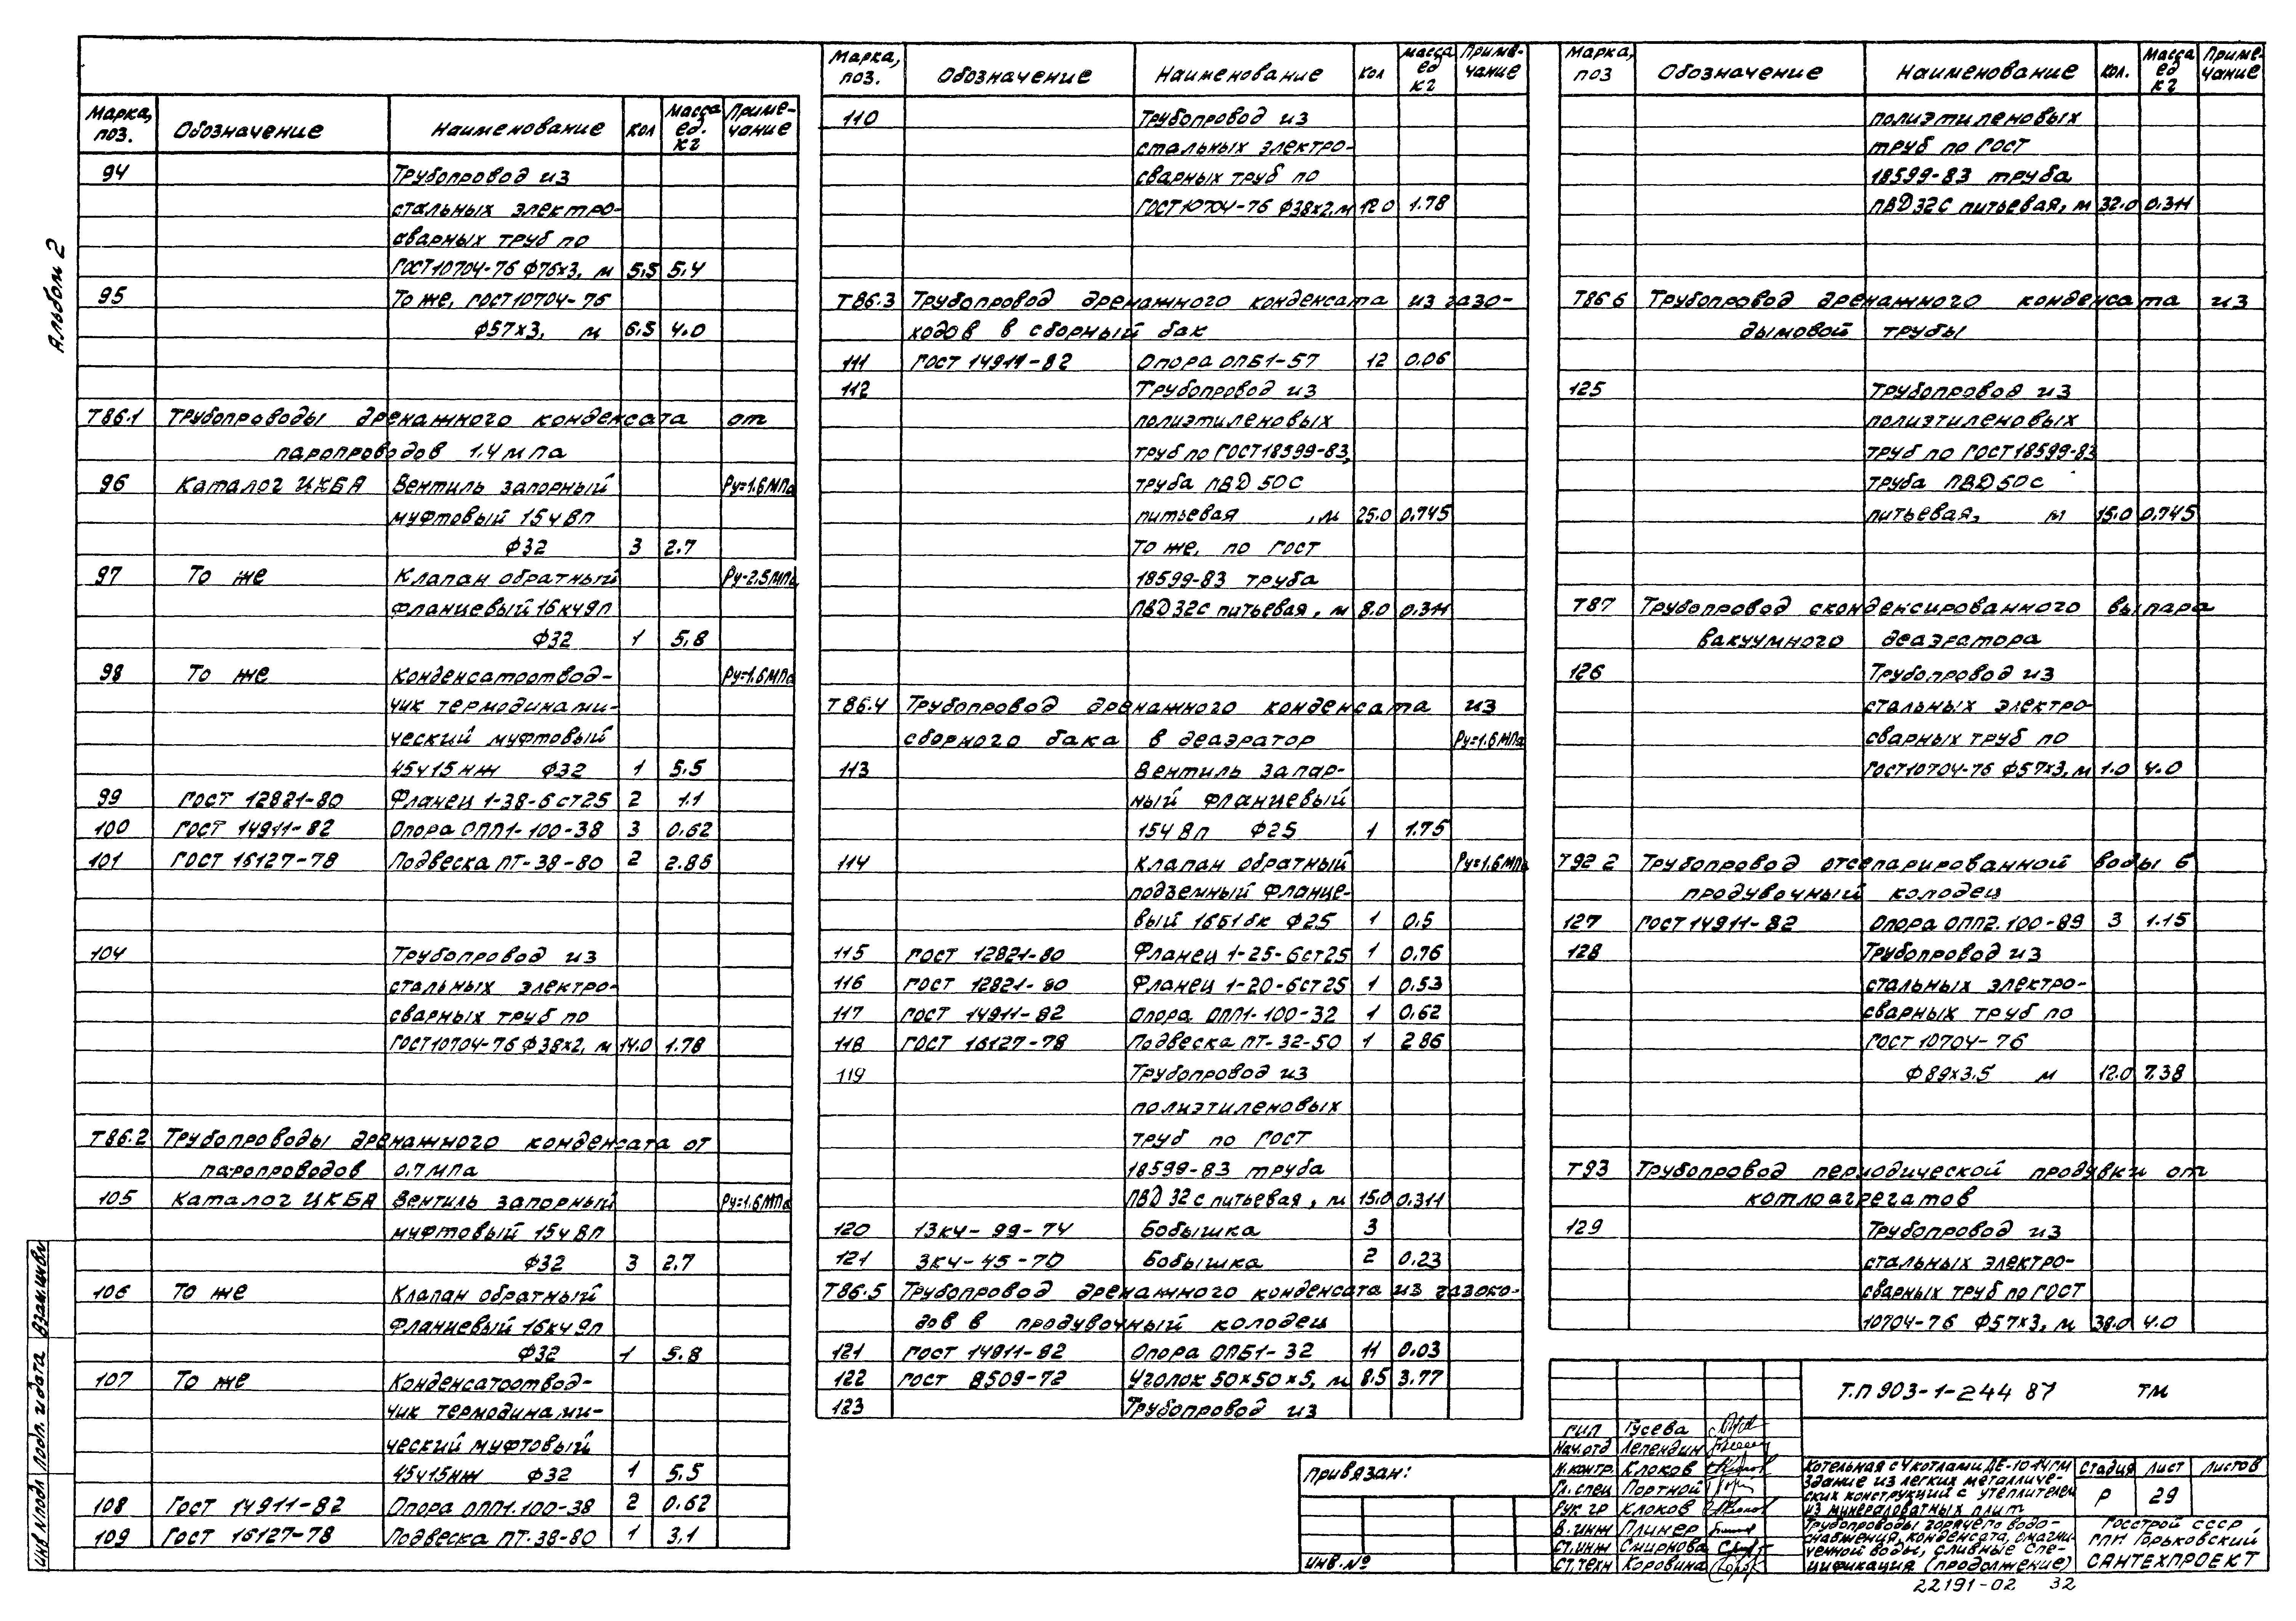 Альбом 2
Марка, поз. Обозначение Наименование Кол Масса ед. кг Приме-чание
94 Трубопровод из
стальных электро-
сварных труб по
ГОСТ10704-76 Ф76х3, м 5,5 5,4
95 То же, ГОСТ10704-76
Ф57х3, м 6,5 4.0
Т86.1 Трубопроводы дренажного конденсата от
паропроводов 1.4 мпа
96 Каталог ЦКБА Вентиль запорный Ру=1.6МПа
муфтовый 15ч8п
Ф32 3 2.7
97 То же Клапан обратный Ру=2.5МПа
фланцевый 16кч9п
Ф32 1 5,8
98 То же Конденсатоотвод- Ру=1.6МПа
чик термодинами-
ческий муфтовый
45ч15нж Ф32 1 5.5
99 ГОСТ 12821-80 Фланец 1-38-6 ст25 2 1.1
100 ГОСТ 14911-82 Опора ОПП1-100-38 3 0.62
101 ГОСТ 16127-78 Подвеска ПТ-38-80 2 2.86
104 Трубопровод из
стальных электро-
сварных труб по
ГОСТ10704-76 Ф38х2, м 14.0 1.78
Т86.2 Трубопроводы дренажного конденсата от
паропроводов 0.7 МПа
105 Каталог ЦКБА Вентиль запорный Ру=1.6МПа
муфтовый 15ч8п
Ф32 3 2.7
106 То же Клапан обратный
Фланцевый 16кч9п
Ф32 1 5.8
107 То же Конденсатоотвод-
чик термодинами-
ческий муфтовый
45ч15нж Ф32 1 5,5
108 Гост 14911-82 Опора ОПП1.100-38 2 0.62
109 ГОСТ 16127-78 Подвеска ПТ-38-80 1 3,1
Марка, поз. Обозначение Наименование Кол Масса ед кг Приме-чание
110 Трубопровод из
стальных электро-
сварных труб по
ГОСТ10704-76 Ф38х2,м 12.0 1.78
Т86.3 Трубопровод дренажного конденсата из газо-
ходов в сборный бак
111 ГОСТ 14911-82 Опора ОПБ1-57 12 0.06
112 Трубопровод из
полиэтиленовых
труб по ГОСТ18599-83,
труба ПВД 50С
питьевая ,м 25.0 0.745
То же, по ГОСТ
18599-83 труба
ПВД32С питьевая, м 8.0 0.311
Т86.4 Трубопровод дренажного конденсата из
сборного бака в деаэратор Ру=1.6МПа
113 Вентиль запор-
ный фланцевый
15ч 8п Ф25 1 1.75
114 Клапан обратный Ру=1.6МПа
подземный Фланце-
вый 16б1бк Ф25 1 0.5
115 ГОСТ 12821-80 Фланец 1-25-6ст25 1 0.76
116 ГОСТ 12821-80 Фланец 1-20-6ст25 1 0.53
117 ГОСТ 14911-82 Опора ОПП1-100-32 1 0.62
118 ГОСТ 16127-78 Подвеска ПТ-32-50 1 2 86
119 Трубопровод из
полиэтиленовых
труб по ГОСТ
18599-83 труба
ПВД 32 С питьевая, м 15.0 0.311
120 13кч-99-74 Бобышка 3
121 3кч-45-70 Бобышка 2 0.23
Т86.5 Трубопровод дренажного конденсата из газохо-
дов в продувочный колодец
121 ГОСТ 14911-82 Опора ОПБ1-32 11 0.03
122 ГОСТ 8509-72 Уголок 50х50х5, м 8.5 3.77
123 Трубопровод из
Марка, поз Обозначение Наименование Кол. Масса ед кг Приме-чание
полиэтиленовых
труб по ГОСТ
18599-83 труба
ПВД32С питьевая, м 32.0 0.311
Т86 6 Трубопровод дренажного конденсата из
дымовой трубы
125 Трубопровод из
полиэтиленовых
труб по ГОСТ18599-83
труба ПВД50С
питьевая, м 15.0 0.745
Т87 Трубопровод сконденсированного выпара
вакуумного деаэратора
126 Трубопровод из
стальных электро-
сварных труб по
ГОСТ10704-76 Ф57х3, м 1.0 4.0
Т92 2 Трубопровод отсепарированной воды в
продувочный колодец
127 ГОСТ14911-82 Опора ОПП2.100-89 3 1.15
128 Трубопровод из
стальных электро-
сварных труб по
ГОСТ 10704-76
Ф89х3.5 м 12.0 7.38
Т93 Трубопровод периодической продувки от
котлоагрегатов
129 Трубопровод из
стальных электро-
сварных труб по ГОСТ
10704-76 Ф57х3, м 38.0 4.0
Т.П 903-1-244 87 ТМ
ГИП Гусева
Нач.отд Лепендин
Н.контр. Клоков
Гл.спец Портной
Рук. гр Клоков
В.инж Плинер
Ст.инж Смирнова
Ст.техн Коровина
Привязан:
инв.№
Котельная с 4 котлами ДЕ-10-14ГМ
Здание из легких металличе-
ских конструкций с утеплителем
из минераловатных плит
Стадия Лист Листов
Р 29
Трубопроводы горячего водо-
снабжения, конденсата, омагни-
ченной воды, сливные Спе-
цификация (продолжение)
Госстрой СССР
ГПИ Горьковский
САНТЕХПРОЕКТ
22191-02 32
Инв N подл Подп. и дата Взам.инв.№